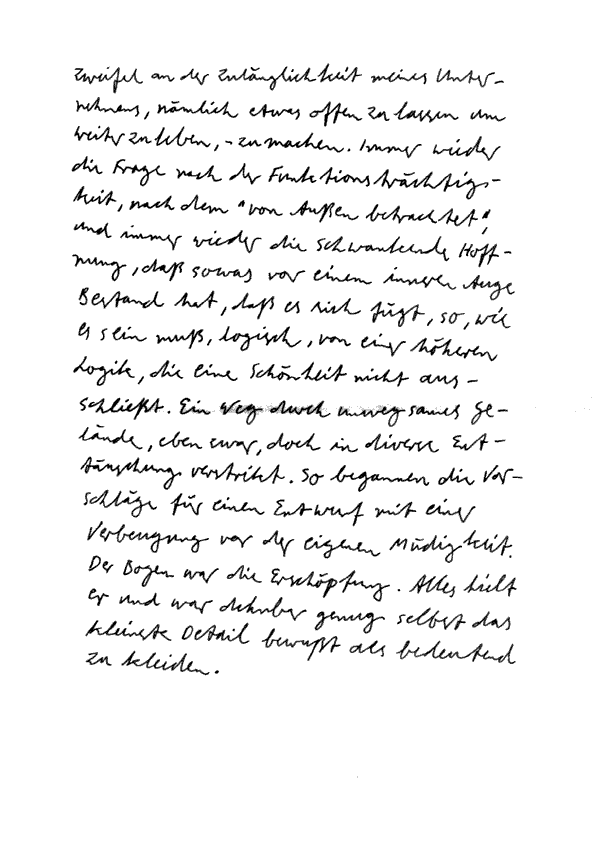 Zweifel an der Zulänglichkeit meines Unter-
nehmens, nämlich etwas offen zu lassen um
weiter zu leben, - zu machen. Immer wieder
die Frage nach der Funktionsträchtig-
keit, nach dem "von Außen betrachtet",
und immer wieder die schwankende Hoff-
nung, daß sowas vor einem inneren Auge
Bestand hat, daß es sich fügt, so, wie
es sein muß, logisch, von einer höheren
Logik, die eine Schönheit nicht aus-
schließt. Ein Weg durch unwegsames Ge-
lände, eben zwar, doch in diverse Ent-
täuschung verstrikt. So begannen die Vor-
schläge für einen Entwurf mit einer
Verbeugung vor der eigenen Müdigkeit.
Der Bogen war die Erschöpfung. Alles hielt
er und war dehnbar genug selbst das
kleinste Detail bewußt als bedeutend
zu kleiden.